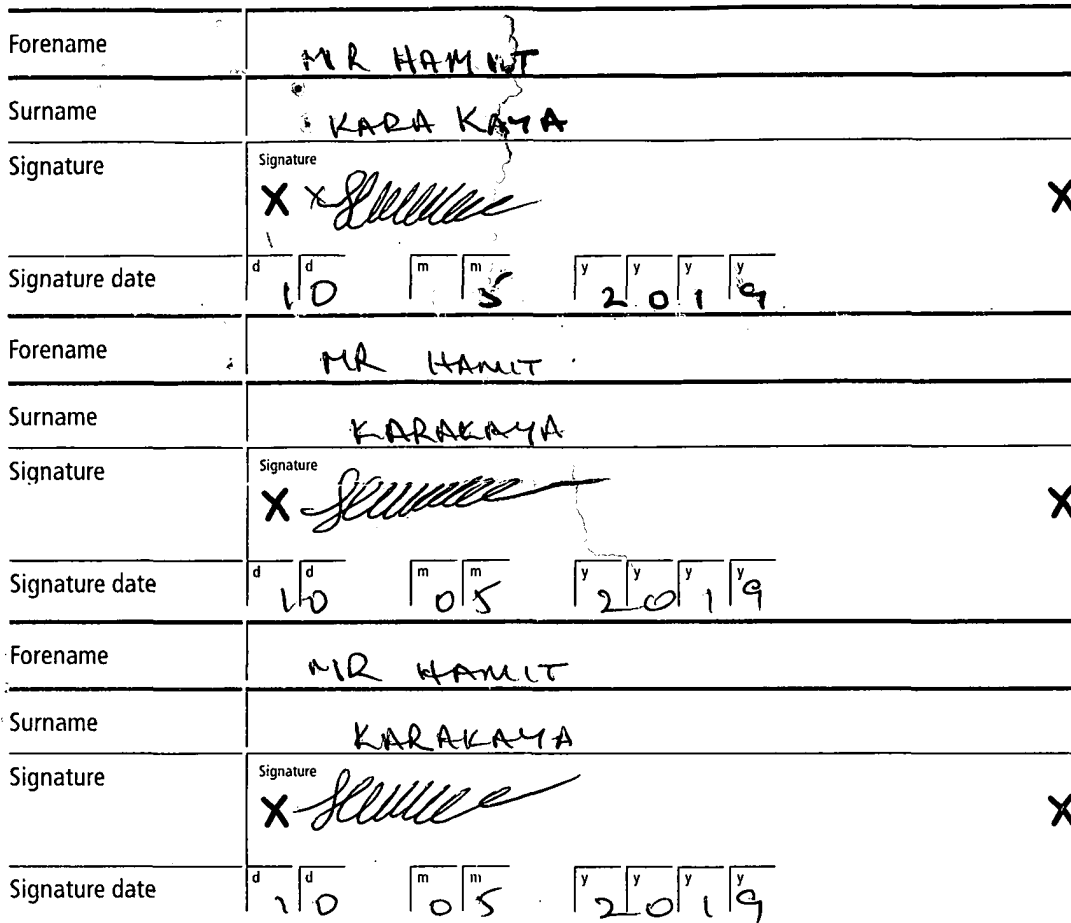 Forename MR HAMIT
Surname KARA KAYA
Signature
Signature
X X X
Signature date d 1 d 0 m m 5 y 2 y 0 y 1 y 9
Forename MR HAMIT
Surname KARAKAYA
Signature
Signature
X X
Signature date d 1 d 0 m 0 m 5 y 2 y 0 y 1 y 9
Forename MR HAMIT
Surname KARAKAYA
Signature
Signature
X X
Signature date d 1 d 0 m 0 m 5 y 2 y 0 y 1 y 9